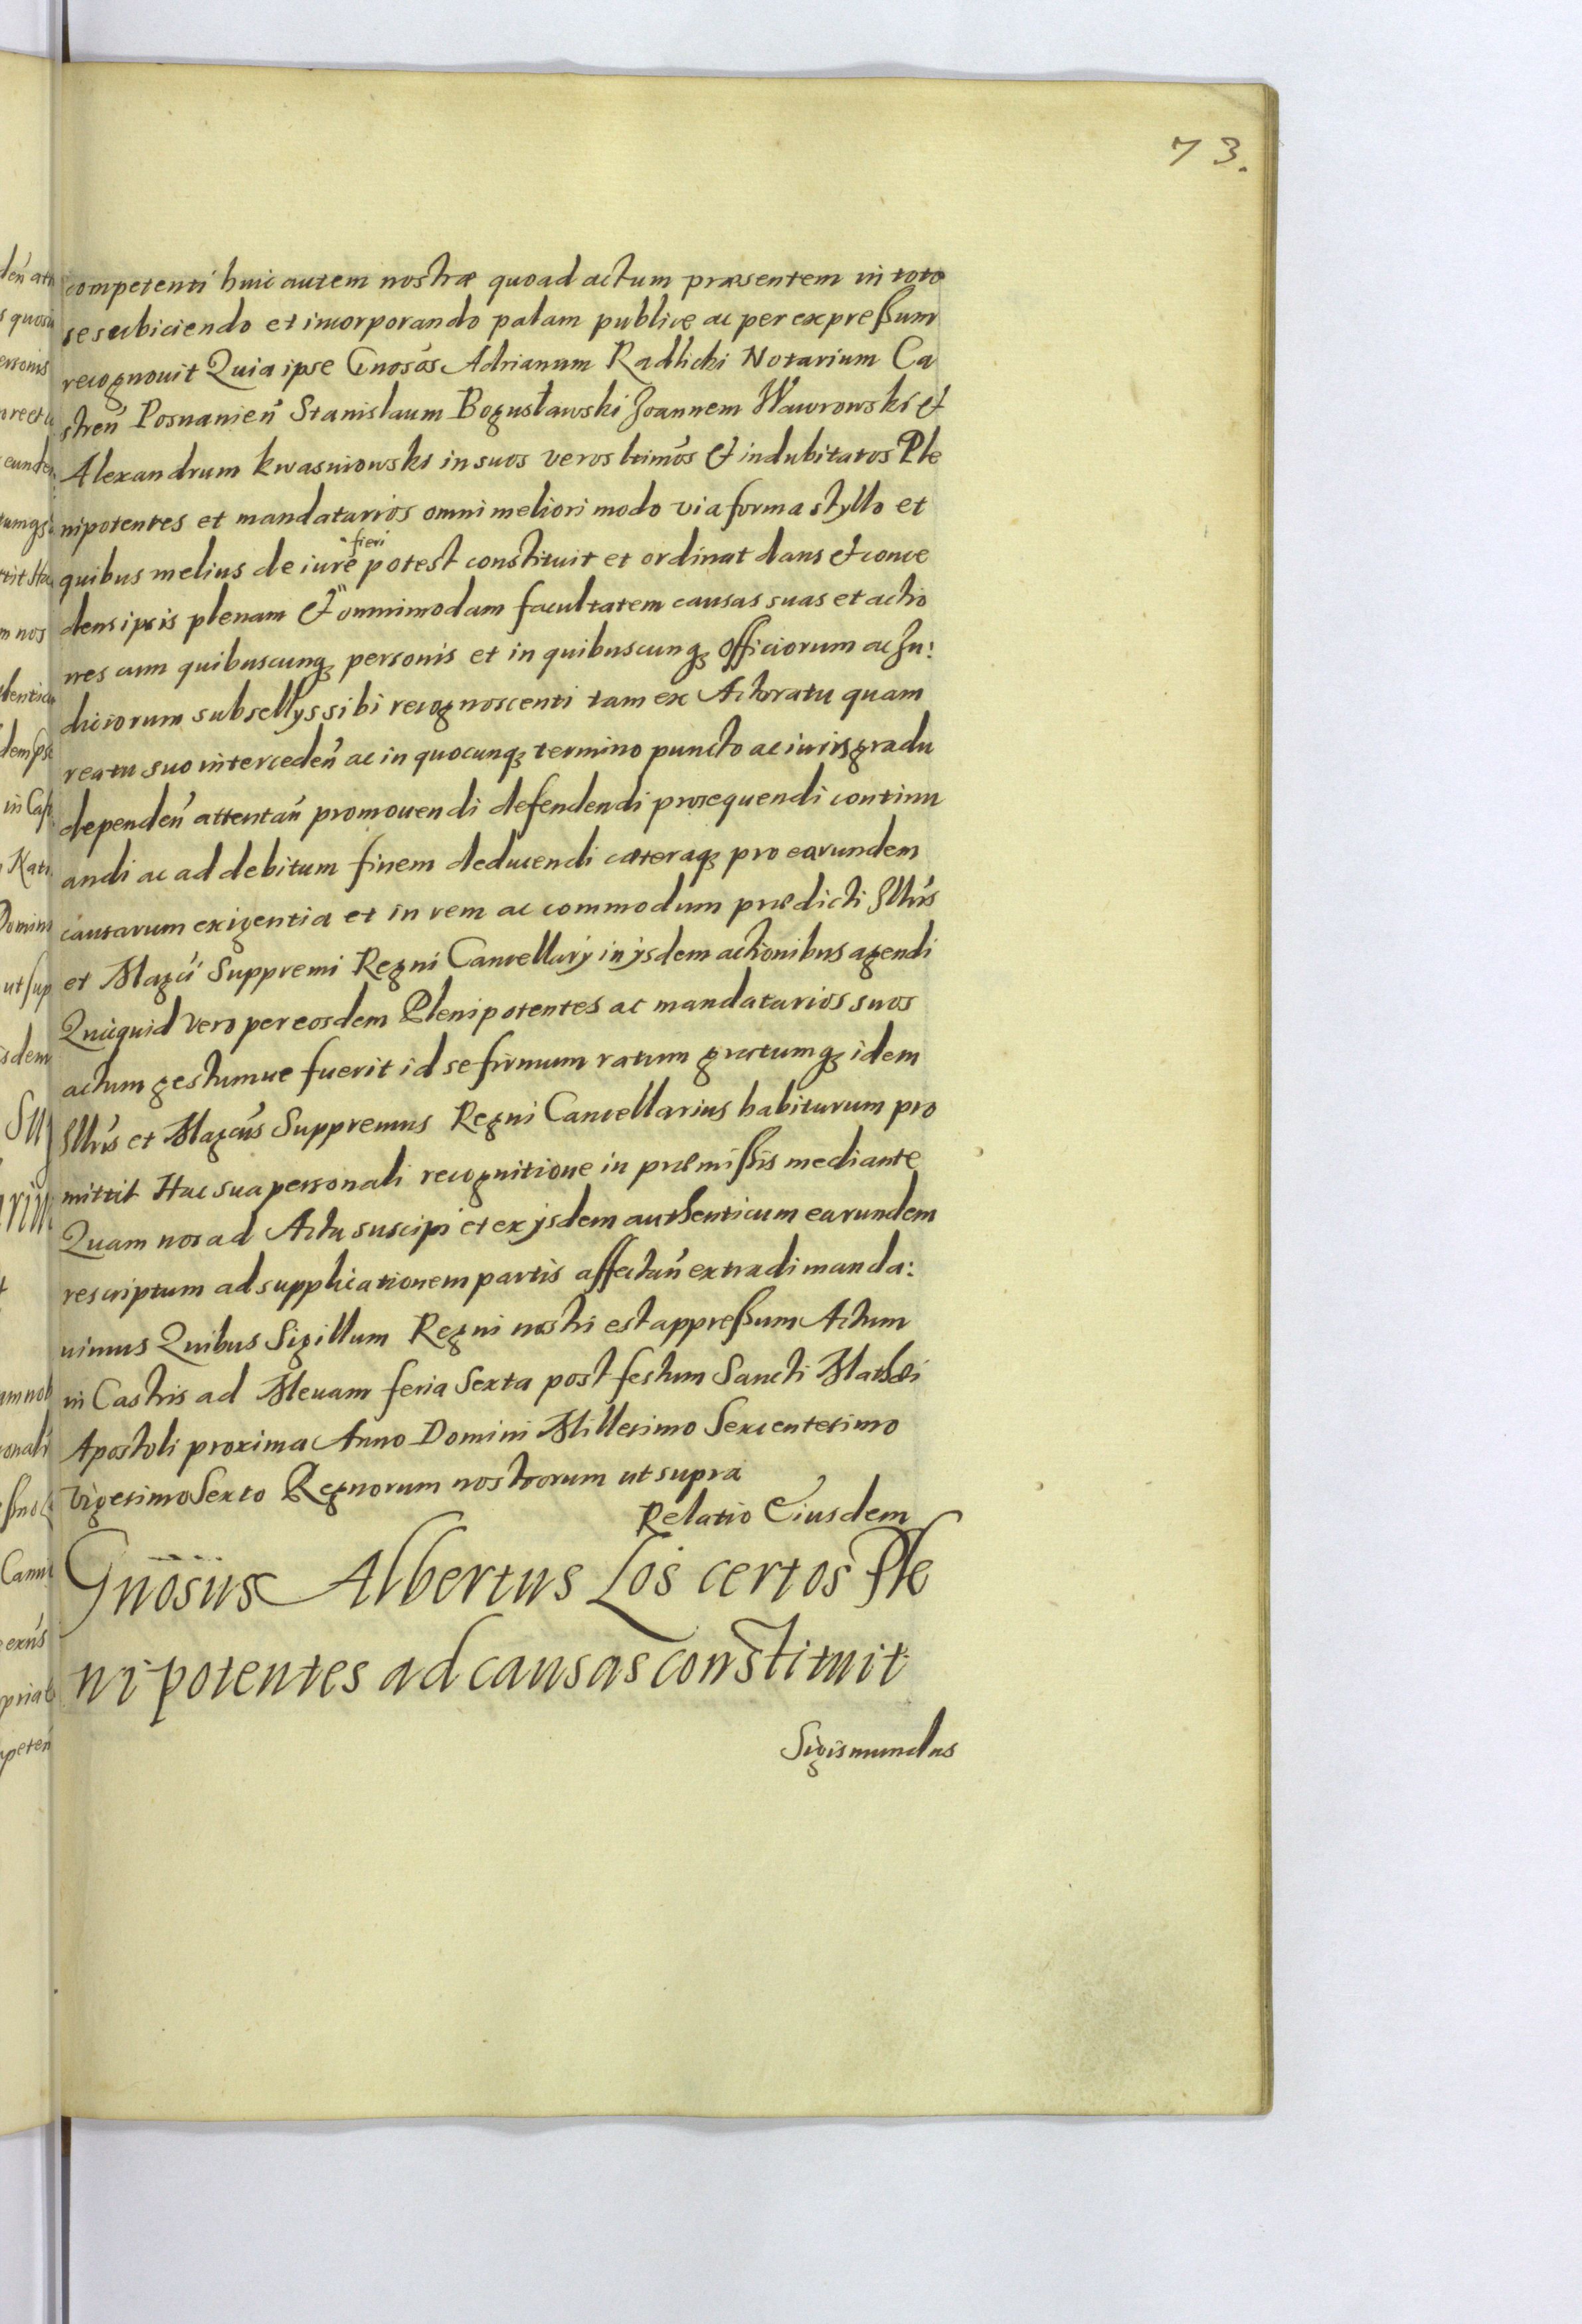 73.
competenti huic autem nostræ quoad actum præsentem in toto
se subiciendo et incorporando palam publice ac per expreßum
recognouit Quia ipse Gnosos Adrianum Radlicki Notarium Ca
stren̄ Posnanien̄ Stanislaum Bogusławski Joannem Wawrowski et
Alexandrum Kwasniowski in suos veros ltimos et indubitatos Ple
nipotentes et mandatarios omni meliori modo via forma styllo et
fieri
quibus melius de iure potest constituit et ordinat dans et conce
dens ipsis plenam et omnimodam facultatem causas suas et actio
nes cum quibuscunq; personis et in quibuscunq; officiorum ac Ju:
diciorum subsellys sibi recognoscenti tam ex Actoratu quam
reatu suo interceden̄ ac in quocunq; termino puncto ac iuris gradu
dependen̄ attentan̄ promouendi defendendi prosequendi continu
andi ac ad debitum finem deducendi cæteraq; pro earundem
causarum exigentia et in rem ac commodum prædicti Illris
et Magci Suppremi Regni Cancellarÿ in ysdem actionibus agendi
Quicquid vero per eosdem Plenipotentes ac mandatarios suos
actum gestumue fuerit id se firmum ratum gratumq; idem
Illris et Magcus Suppremus Regni Cancellarius habiturum pro
mittit Hac sua personali recognitione in præmißis mediante
Quam nos ad Acta suscipi et ex ysdem authenticum earundem
rescriptum ad supplicationem partis affectan̄ extradi manda:
uimus Quibus Sigillum Regni nostri est appreßum Actum
in Castris ad Meuam feria Sexta post festum Sancti Mathæi
Apostoli proxima Anno Domini Millesimo Sexcentesimo
Vigesimo Sexto Regnorum nostrorum ut supra
Relatio Eiusdem
Gnosus Albertus Los certos Ple
nipotentes ad causas constituit
Sigismundus